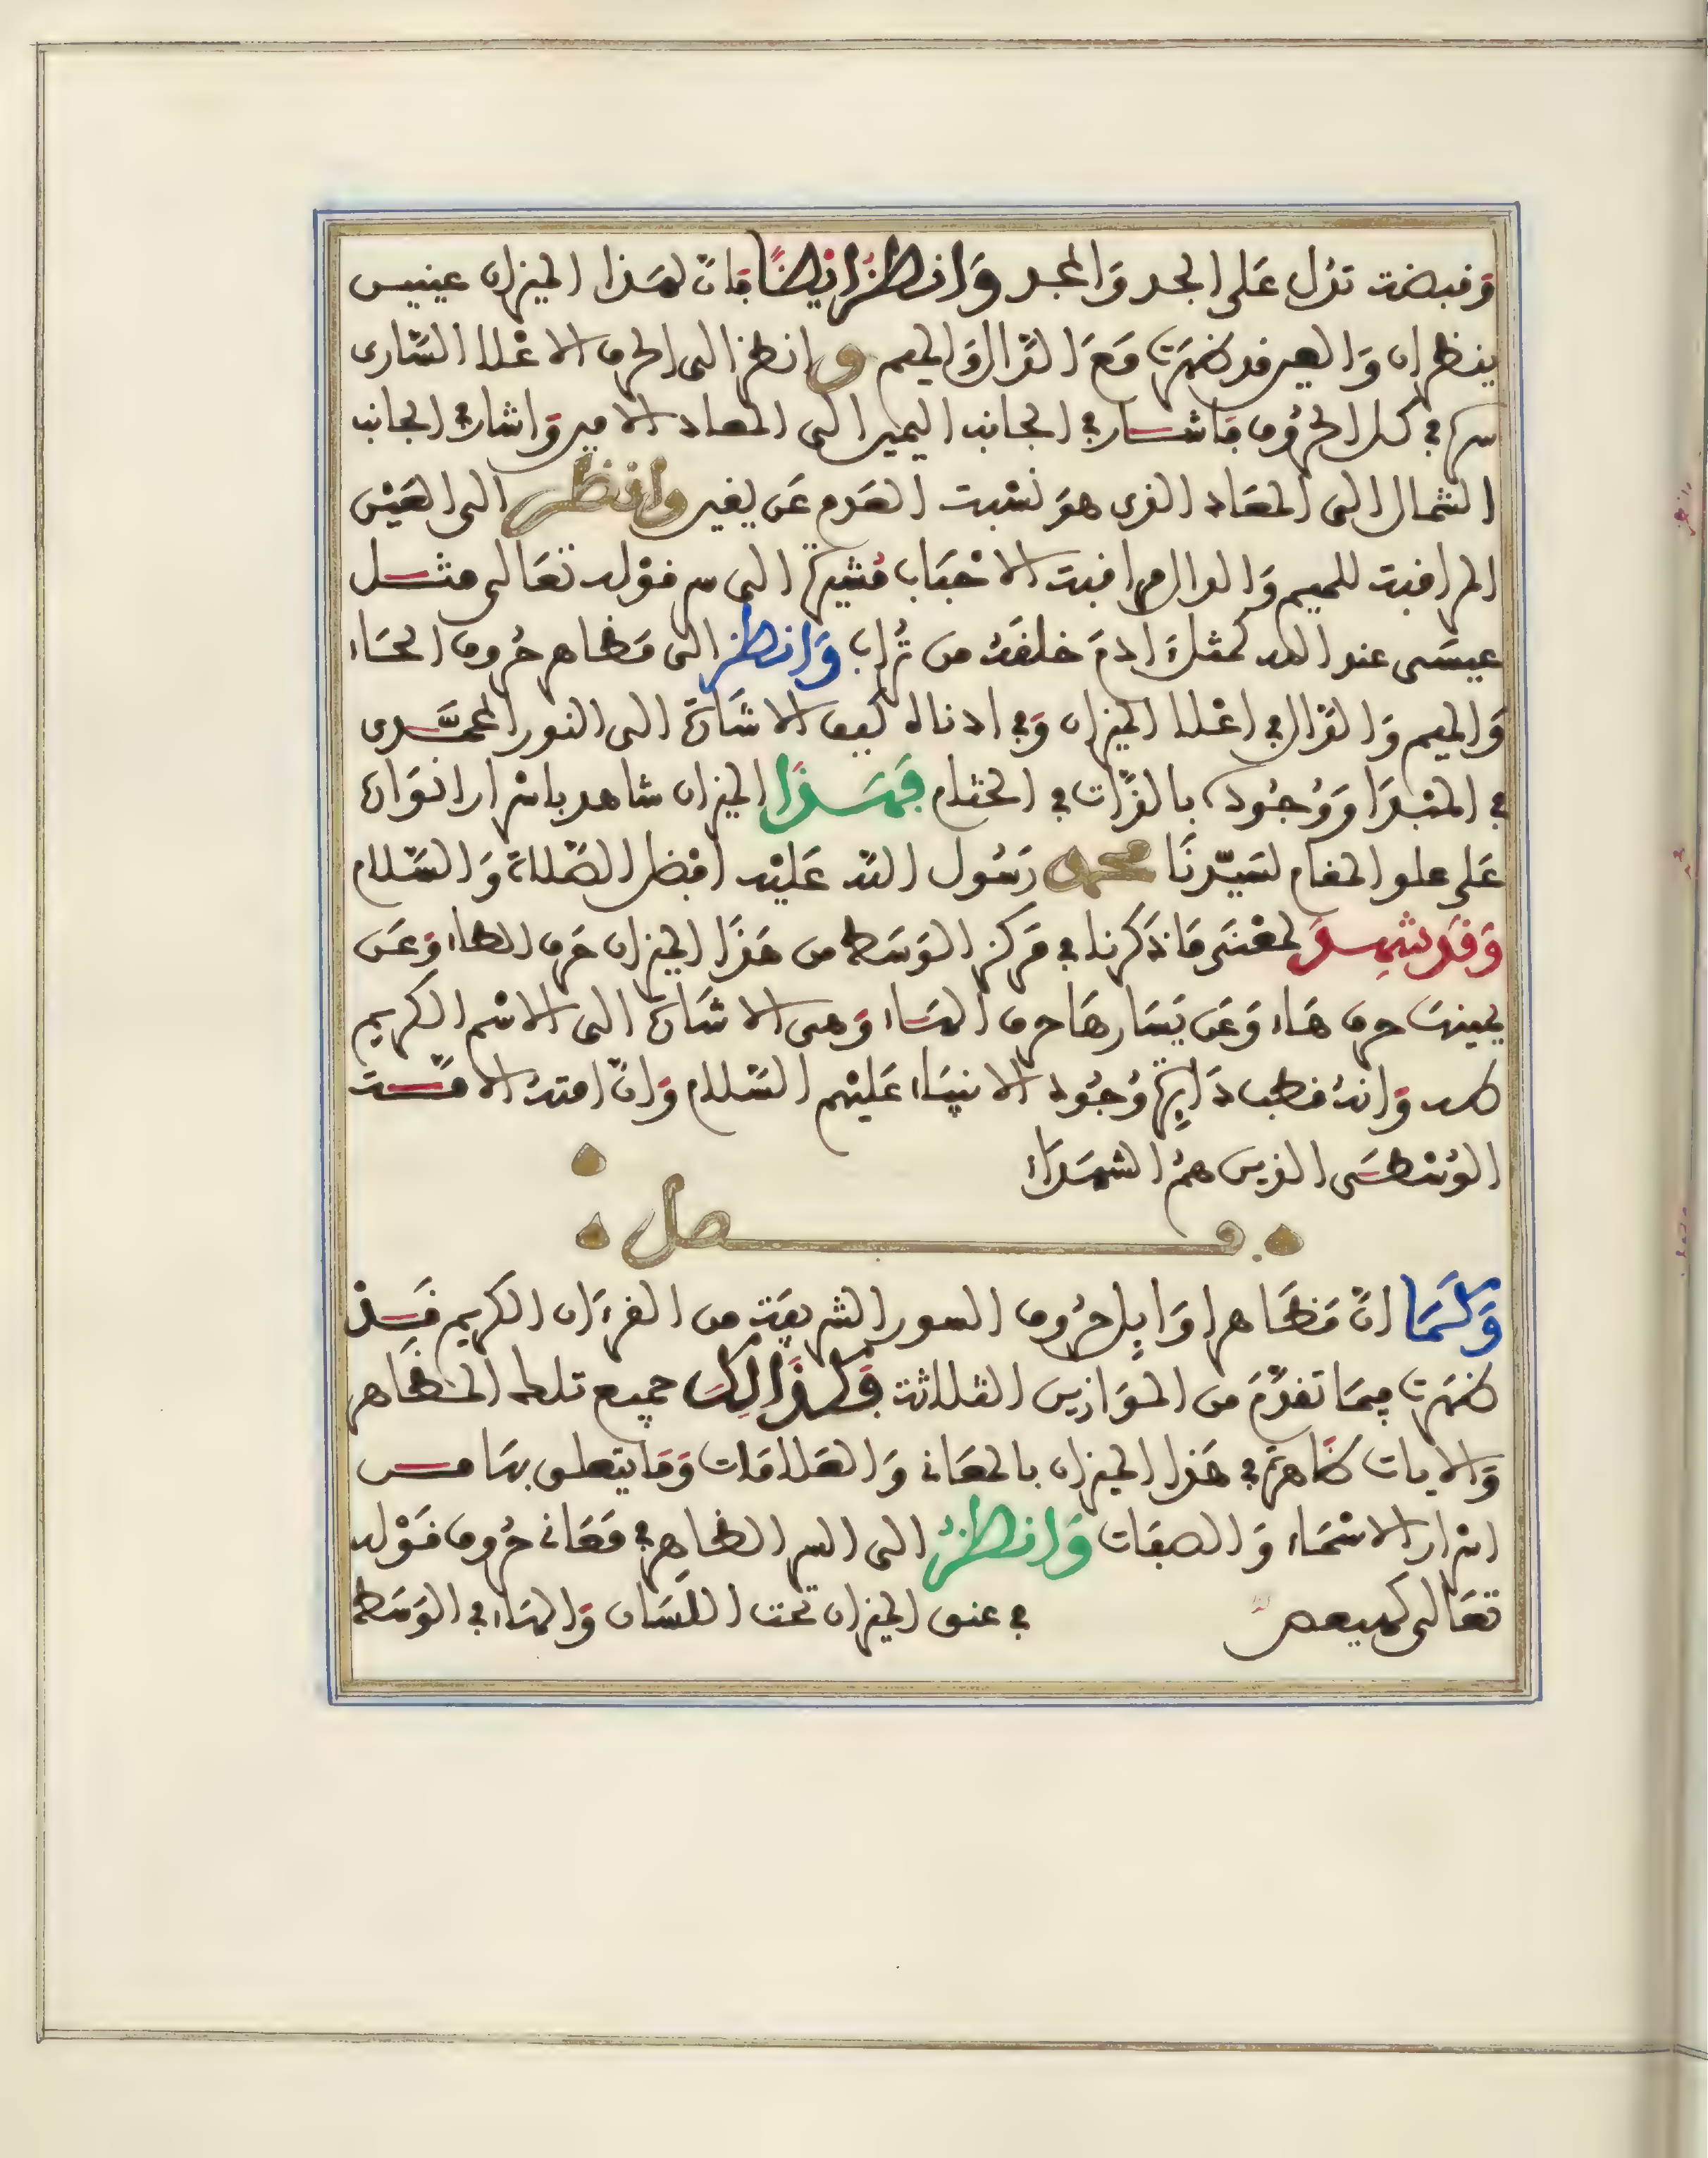 وقبضت تدل على الحد والمجد وانظر ايضا فان لهذا الميزان عينين
ينظران والعين قد ظهرت مع الدال والميم وانظر الى الحرف الاعلا الساري
سره في كل الحروف فاشار في الجانب اليمين الى المعاد الامين واشار في الجانب
الشمال الى المعاد الذي هو نسبت العدم عن يقين وانظر الى العين
المراقبت للميم والدال مراقبت الاحباب مشيرة الى سر قوله تعالى مثل
عيسى عند الله كمثل ءادم خلقه من تراب وانظر الى مظاهر حروف الحاء
والميم والدال في اعلا الميزان وفي ادناه كيف الاشارة الى النور المحمدي
في المبدا ووجوده بالذات في الختام فهذا الميزان شاهد باسرار انواره
على علو المقام لسيدنا محمد رسول الله عليه افضل الصلاة والسلام
وقد شهد لمعنى ما ذكرنا في مركز الوسط من هذا الميزان حرف الطاء وعن
يمينها حرف هاء وعن يسارها حرف الهاء وهي الاشارة الى الاسم الكريم
طه وانه قطب دايرة وجود الانبياء عليهم السلام وان امته الامت
الوسطى الذين هم الشهداء
فصل
وكما ان مظاهر اوايل حروف السور الشريفة من القرءان الكريم قد
ظهرت فيما تقدم من الموازين الثلاثة فكذالك جميع تلك المظاهر
والايات ظاهرة في هذا الميزان بالمعاني والعلامات وما يتعلق بها من
اسرار الاسماء والصفات وانظر الى السر الظاهر في معاني حروف قوله
تعالى كهيعص في عنق الميزان تحت اللسان والهاء في الوسط